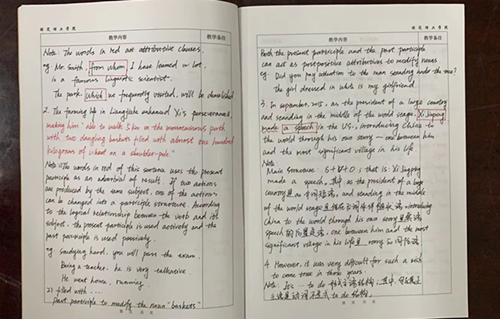 教学内容
教学备注
Note: The words in red are attributive clauses.
eg. Mr. Smith, from whom I have learned a lot,
is a famous linguistic scientist.
The park, which we frequently visited, will be demolished
2. The farming life in Liangjiahe enhanced Xi's perseverance,
making him able to walk 5 km on the mountainous path
with two dangling baskets filled with almost one hundred
kilograms of wheat on a shoulder-pole."
Note: ① The words in red of this sentence uses the present
participle as an adverbial of result. If two actions
are produced by the same subject, one of the actions
can be changed into a participle structure. According
to the logical relationship between the verb and its
subject, the present participle is used actively and the
past participle is used passively.
eg. studying hard, you will pass the exam.
Being a teacher, he is very talkative
He went home, running.
2) filled with ....
Past participle to modify the noun "baskets"
教学内容
教学备注
Both the present participle and the past participle
can act as postpositive attributives to modify nouns
eg. Did you pay attention to the man standing under the tree?
The girl dressed in white is my girlfriend.
3. In september, 2015, as the president of a large country
and standing in the middle of the world stage, Xi Jinping
made a speech in the U.S., introducing China to
the world through his own story — one between him
and the most significant village in his life
Note
Main structure S+V+O, that is: Xi Jinping
made a speech,
as the president of a large
country
and standing in the middle
of the world stage
introducing
China to the world through his own story
speech
one between him and the most
significant village in his life
4. However, it was very difficult for such a wish
to come true in those years.
Note: to do
to do